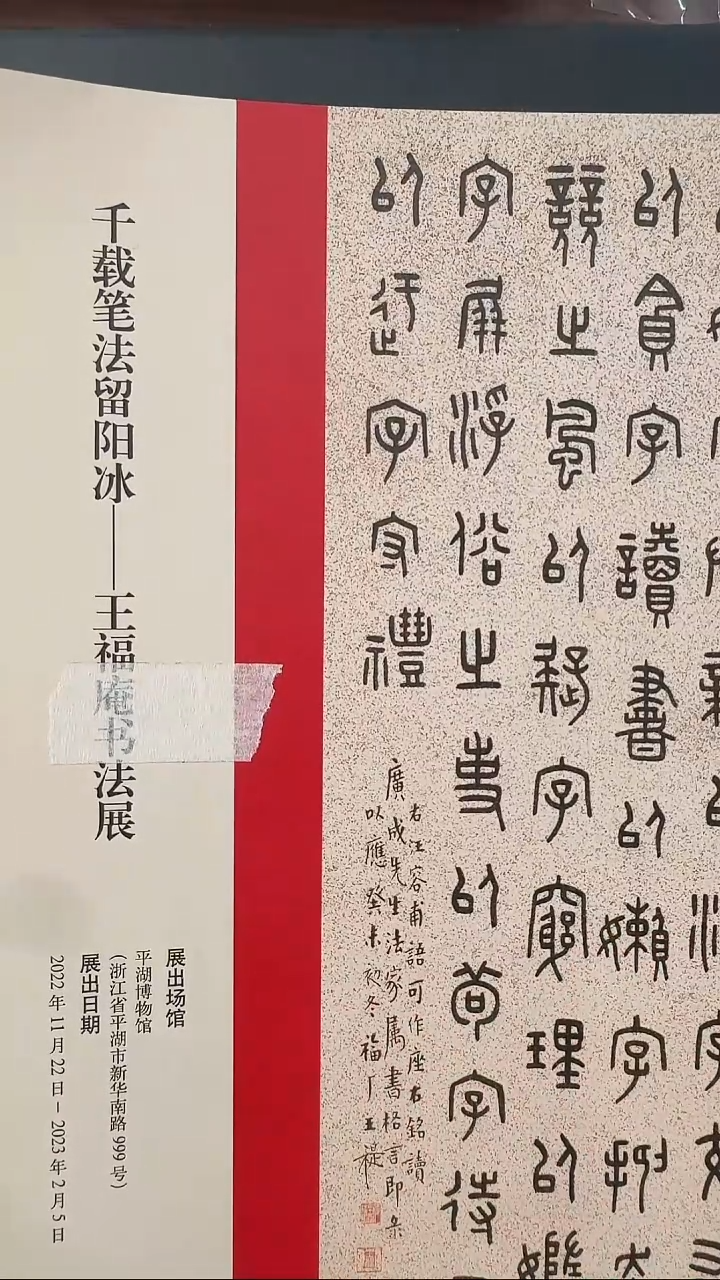 以貪字讀書以嬾字抑
競之風以疑字窮理以
字屏浮俗之事以苟字待
以迂字守禮
右汪容甫語可作座右銘讀
廣成先生法家属書格言即录
以應癸未初冬福厂王禔
千载笔法留阳冰——王福庵书法展
展出场馆
平湖博物馆
（浙江省平湖市新华南路 999 号）
展出日期
2022 年 11 月 22 日 – 2023 年 2 月 5 日